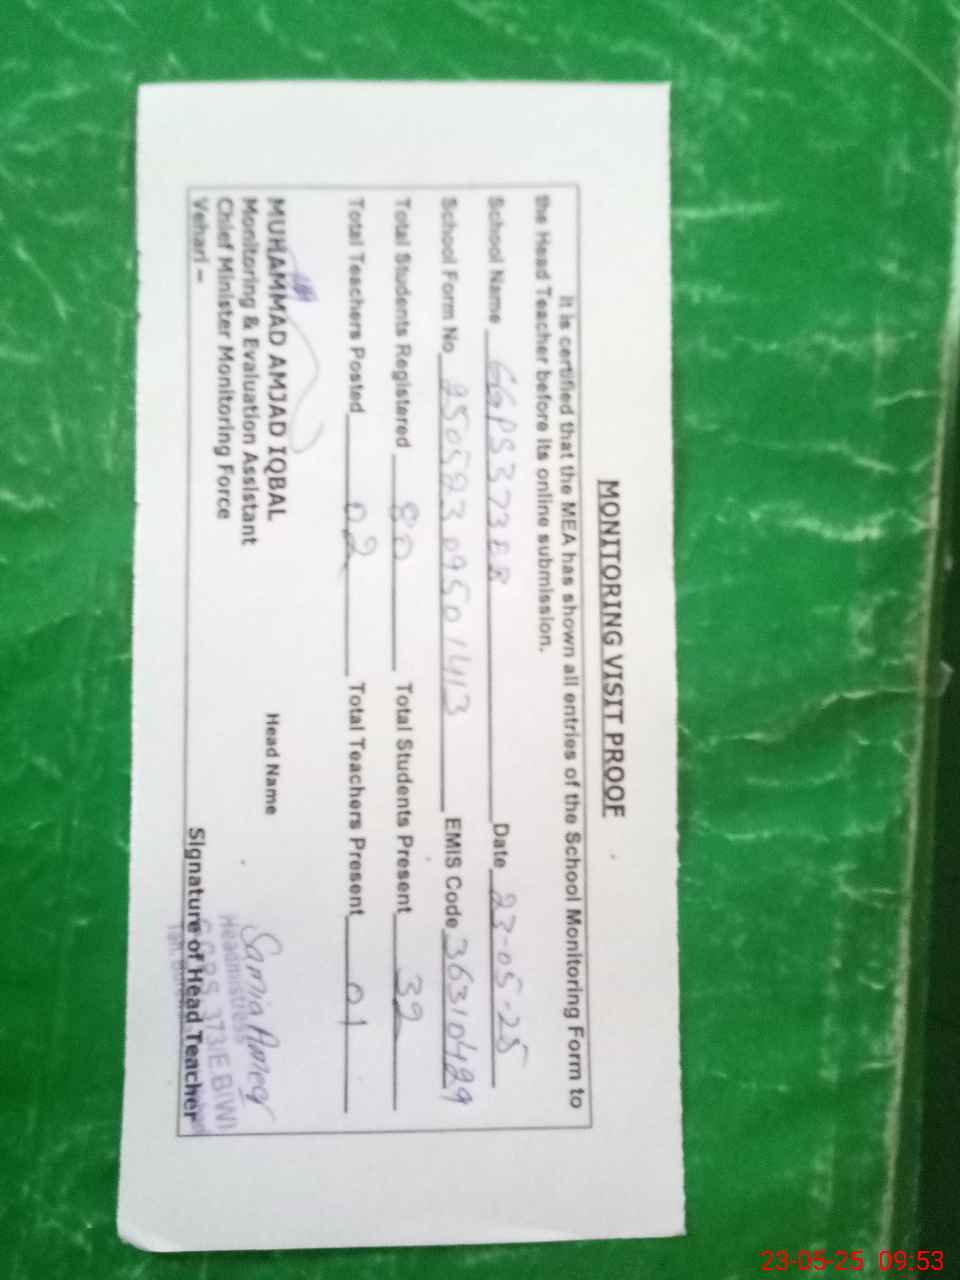 MONITORING VISIT PROOF
It is certified that the MEA has shown all entries of the School Monitoring Form to
the Head Teacher before its online submission.
School Name GGPS 373 EB Date 23-05-25
School Form No 25052309501413 EMIS Code 36310429
Total Students Registered 80 Total Students Present 32
Total Teachers Posted 02 Total Teachers Present 01
MUHAMMAD AMJAD IQBAL Head Name
Monitoring & Evaluation Assistant
Chief Minister Monitoring Force
Vehari –
Samia
Headmistress
G.G.P.S. 373/E.B(W)
Signature of Head Teacher
23-05-25 09:53